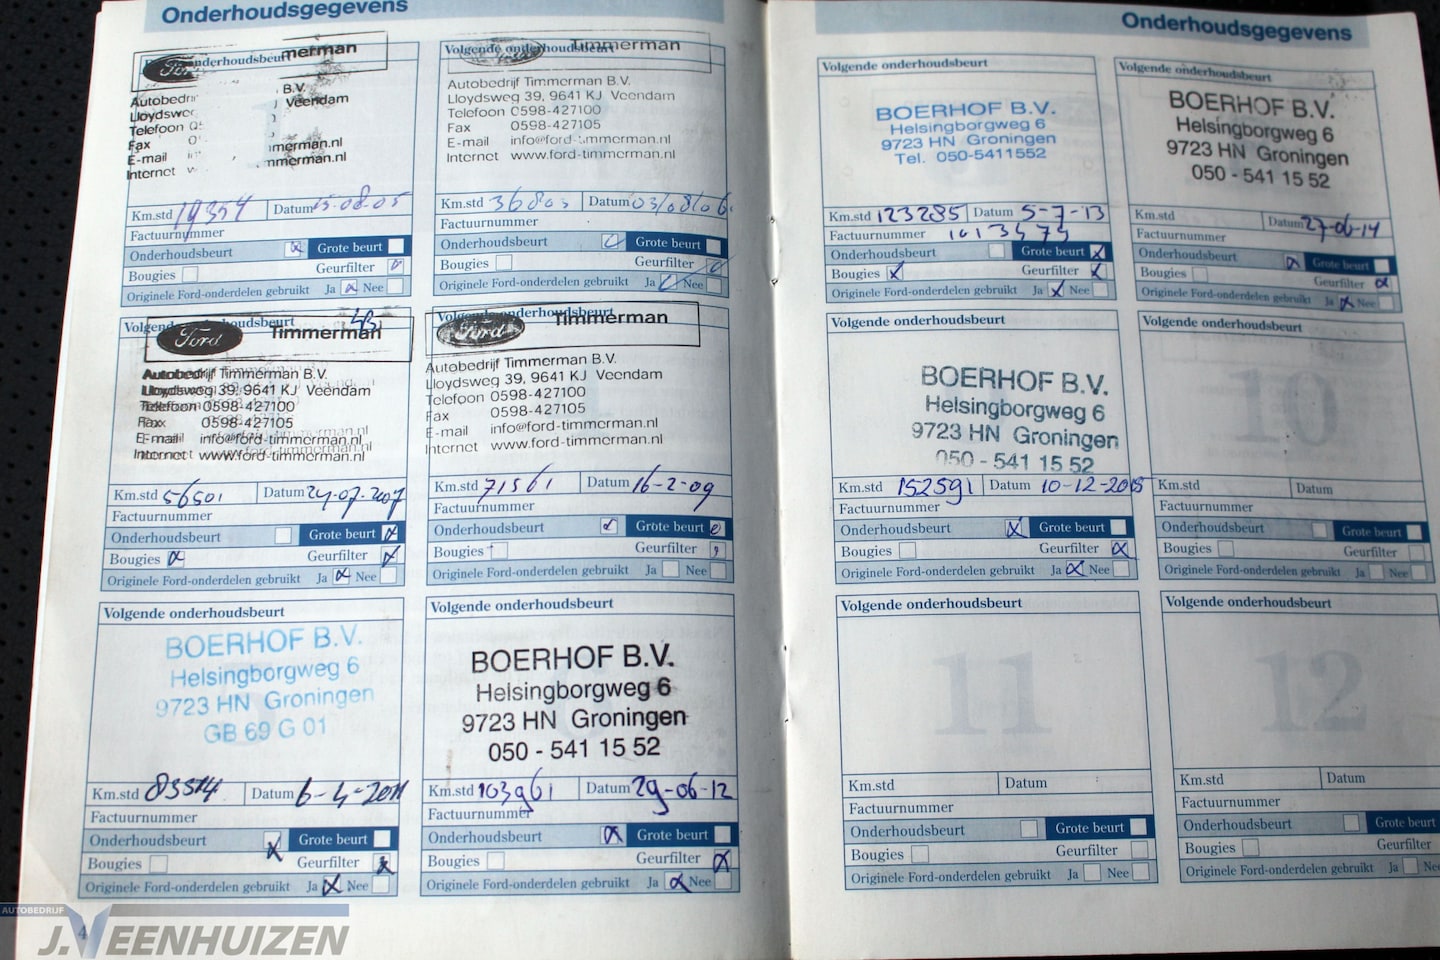 Onderhoudsgegevens
Volgende onderhoudsbeurt
Ford Timmerman
B.V.
Autobedrijf
Veendam
Telefoon
Fax
E-mail
mmerman.nl
Internet
mmerman.nl
Km.std 19354 Datum 15-08-05
Factuurnummer
Onderhoudsbeurt Grote beurt
Bougies Geurfilter
Originele Ford-onderdelen gebruikt Ja Nee
Volgende onderhoudsbeurt
Timmerman
Autobedrijf Timmerman B.V.
Lloydsweg 39, 9641 KJ Veendam
Telefoon 0598-427100
Fax 0598-427105
E-mail info@ford-timmerman.nl
Internet www.ford-timmerman.nl
Km.std 36803 Datum 03/08/06
Factuurnummer
Onderhoudsbeurt Grote beurt
Bougies Geurfilter
Originele Ford-onderdelen gebruikt Ja Nee
Volgende onderhoudsbeurt
Ford Timmerman
Autobedrijf Timmerman B.V.
Lloydsweg 39, 9641 KJ Veendam
Telefoon 0598-427100
Fax 0598-427105
E-mail info@ford-timmerman.nl
Internet www.ford-timmerman.nl
Km.std 56501 Datum 24-07-2007
Factuurnummer
Onderhoudsbeurt Grote beurt
Bougies Geurfilter
Originele Ford-onderdelen gebruikt Ja Nee
Volgende onderhoudsbeurt
Ford Timmerman
Autobedrijf Timmerman B.V.
Lloydsweg 39, 9641 KJ Veendam
Telefoon 0598-427100
Fax 0598-427105
E-mail info@ford-timmerman.nl
Internet www.ford-timmerman.nl
Km.std 71561 Datum 16-2-09
Factuurnummer
Onderhoudsbeurt Grote beurt
Bougies Geurfilter
Originele Ford-onderdelen gebruikt Ja Nee
Volgende onderhoudsbeurt
BOERHOF B.V.
Helsingborgweg 6
9723 HN Groningen
GB 69 G 01
Km.std 83514 Datum 6-4-2011
Factuurnummer
Onderhoudsbeurt Grote beurt
Bougies Geurfilter
Originele Ford-onderdelen gebruikt Ja Nee
Volgende onderhoudsbeurt
BOERHOF B.V.
Helsingborgweg 6
9723 HN Groningen
050 - 541 15 52
Km.std 103961 Datum 29-06-12
Factuurnummer
Onderhoudsbeurt Grote beurt
Bougies Geurfilter
Originele Ford-onderdelen gebruikt Ja Nee
4
Onderhoudsgegevens
Volgende onderhoudsbeurt
BOERHOF B.V.
Helsingborgweg 6
9723 HN Groningen
Tel. 050-5411552
Km.std 123285 Datum 5-7-13
Factuurnummer 1013479
Onderhoudsbeurt Grote beurt
Bougies Geurfilter
Originele Ford-onderdelen gebruikt Ja Nee
Volgende onderhoudsbeurt
BOERHOF B.V.
Helsingborgweg 6
9723 HN Groningen
050 - 541 15 52
Km.std Datum 27-06-14
Factuurnummer
Onderhoudsbeurt Grote beurt
Bougies Geurfilter
Originele Ford-onderdelen gebruikt Ja Nee
Volgende onderhoudsbeurt
BOERHOF B.V.
Helsingborgweg 6
9723 HN Groningen
050 - 541 15 52
Km.std 152591 Datum 10-12-2015
Factuurnummer
Onderhoudsbeurt Grote beurt
Bougies Geurfilter
Originele Ford-onderdelen gebruikt Ja Nee
Volgende onderhoudsbeurt
10
Km.std Datum
Factuurnummer
Onderhoudsbeurt Grote beurt
Bougies Geurfilter
Originele Ford-onderdelen gebruikt Ja Nee
Volgende onderhoudsbeurt
11
Km.std Datum
Factuurnummer
Onderhoudsbeurt Grote beurt
Bougies Geurfilter
Originele Ford-onderdelen gebruikt Ja Nee
Volgende onderhoudsbeurt
12
Km.std Datum
Factuurnummer
Onderhoudsbeurt Grote beurt
Bougies Geurfilter
Originele Ford-onderdelen gebruikt Ja Nee
AUTOBEDRIJF
J. VEENHUIZEN